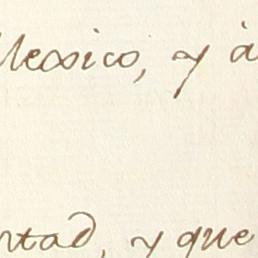 Mexico, y á
rtad, y que